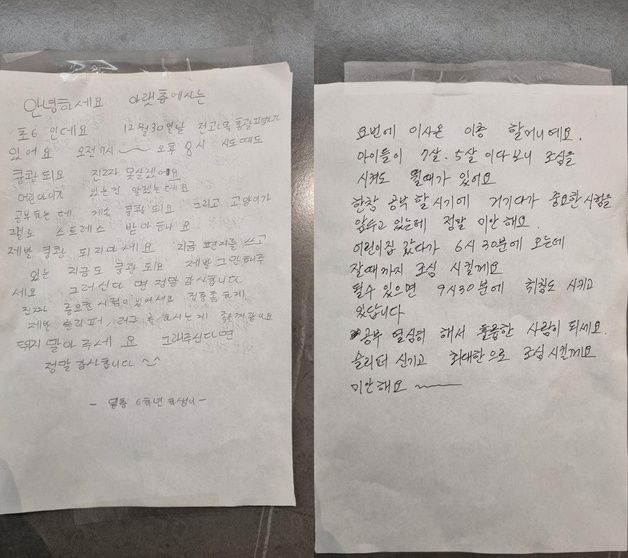 안녕하세요 아랫층에사는
초6 인데요 12월30일날 전고1목통괄고사가
있어요 오전7시~~ 오후 8시 시도때도
쿵콩되요 진짜 못살겠에요
어린아이가 있는건 알겠는데요
공부하는데 계속 쿵콩되요 그리고 고양이가
스트레스 받아하나요
제발 쿵콩 되지마세요 지금 편지를 쓰고
있는 지금도 쿵콩 되요 제발 그만해주
세요 그러신다면 정말 감사합니다.
진짜 중요한 시험이 있어서요 집중좀하게
제발 슬리퍼, 하시는게 좋은거같아요
뛰지말아주세요 그래주신다면
정말감사합니다 ^^
- 6학년 학생이-
요번에 이사온 이층 할머니예요.
아이들이 7살. 5살 이다보니 조심을
시켜도 뛸때가 있어요
한창 공부할시기에 거기다가 중요한 시험을
앞두고 있는데 정말 미안해요.
어린이집 갔다가 6시 30분에 오는데
잘때까지 조심 시킬께요
될수 있으면 9시30분에 취침도 시키고
있답니다
공부 열심히 해서 훌륭한 사람이 되세요.
슬리퍼 신기고 최대한으로 조심시킬께요
미안해요 ~~~